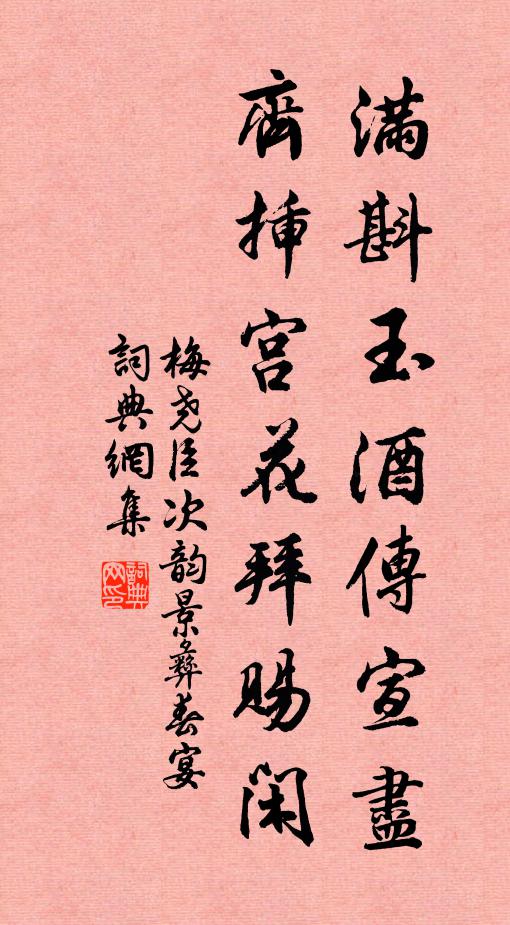 滿斟玉酒傳宣盡
齊揷宮花拜賜閑
梅堯臣次韵景彝春宴
詞典網集
詞典網印